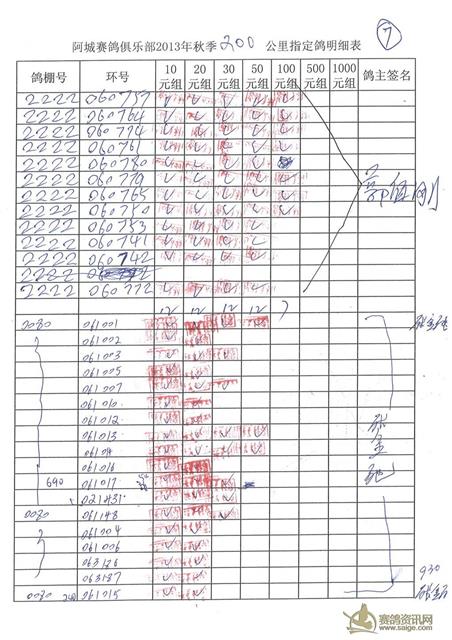 阿城赛鸽俱乐部2013年秋季200 公里指定鸽明细表 ⑦
鸽棚号 环号 10元组 20元组 30元组 50元组 100元组 500元组 1000元组 鸽主签名
2222 060757
2222 060764
2222 060774
2222 060761
2222 060780
2222 060779
2222 060765
2222 060750
2222 060753
2222 060741
2222 060742
2222
2222 060772
12 12 12 12 7
2080 061001
061002
061003
061005
061007
061010
061012
061013
06101
061016
690 061017
021431
0080 061148
061004
061006
063126
063187
0080 061015
930
赛鸽资讯网
www.saige.com